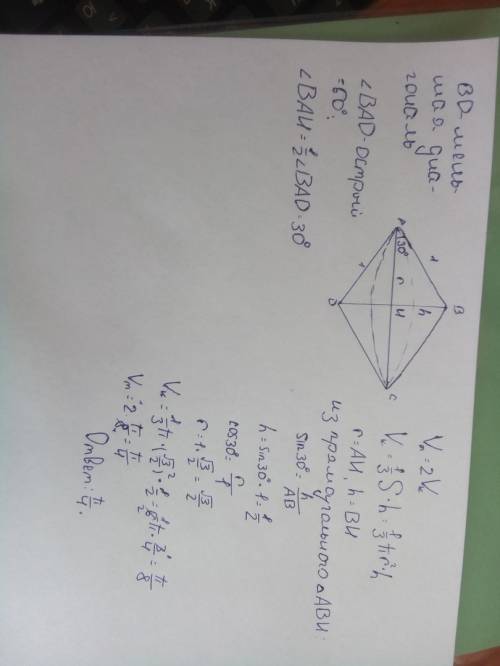 BD - мень-
шая диа-
гональ
∠BAD - острый
= 60°;
∠BAH = 1/2 ∠BAD = 30°
A
30°
1
1
r
h
B
H
D
C
Vт = 2Vк
Vк = 1/3 S · h = 1/3 πr²h
r = AH, h = BH
из прямоугольного △ABH:
sin30° = h/AB
h = sin30° · 1 = 1/2
cos30° = r/1
r = 1 · √3/2 = √3/2
Vк = 1/3 π · (√3/2)² · 1/2 = 1/6 π · 3/4 = π/8
Vт = 2 · π/8 = π/4
Ответ: π/4.